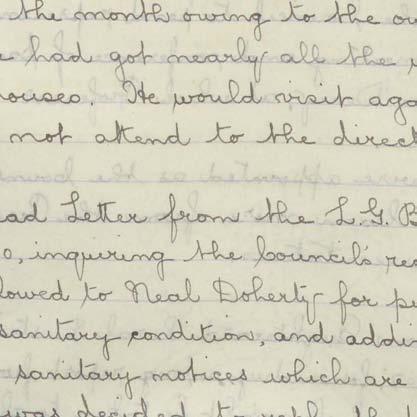 the month owing to the
had got nearly all the
houses. He would visit
not attend to the
Letter from the L.G.B
inquiring the Council's
to Neal Doherty for
sanitary condition, and
sanitary notices which are
was decided to